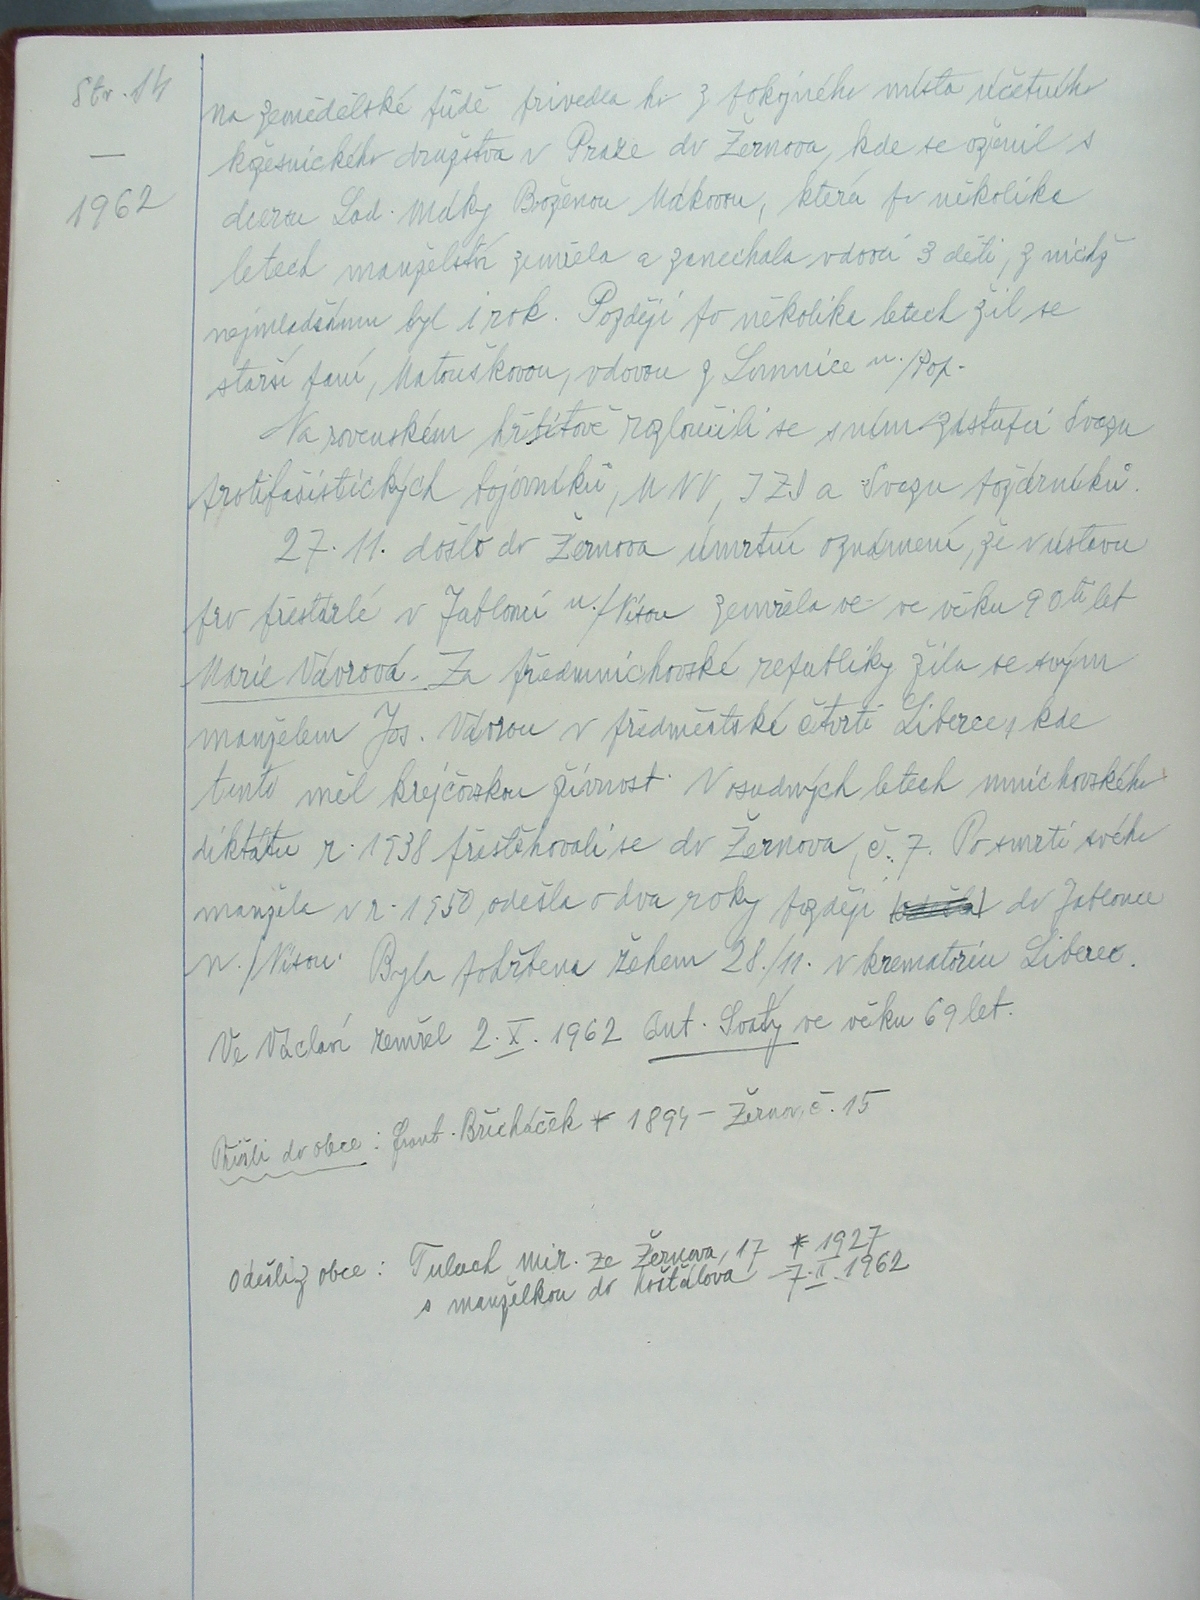 Str. 14
—
1962
na zemědělské půdě přivedla ho z pokojného místa účetního
kožešnického družstva v Praze do Žernova, kde se oženil s
dcerou Lad. Máky Boženou Mákovou, která po několika
letech manželství zemřela a zanechala vdovci 3 děti, z nichž
nejmladšímu byl 1 rok. Později po několika letech žil se
starší paní, Matouškovou, vdovou z Lomnice n./Pop.
Na rovenském hřbitově rozloučili se s ním zástupci Svazu
protifašistických bojovníků, MNV, JZD a Svazu požárníků.
27. 11. došlo do Žernova úmrtní oznámení, že v ústavu
pro přestárlé v Jablonci n./Nisou zemřela ve ve věku 90ti let
Marie Vávrová. Za předmnichovské republiky žila se svým
manželem Jos. Vávrou v předměstské čtvrti Liberce, kde
tento měl krejčovskou živnost. V osudných letech mnichovského
diktátu r. 1938 přestěhovali se do Žernova, č. 7. Po smrti svého
manžela v r. 1950, odešla o dva roky později do Jablonce
n./Nisou. Byla pohřbena žehem 28./11. v krematoriu Liberec.
Ve Václaví zemřel 2. X. 1962 Ant. Svatý ve věku 69 let.
Přišli do obce: Frant. Břicháček * 1894 – Žernov, č. 15
Odešli z obce: Tulach Mir. ze Žernova, 17 * 1927
s manželkou do Košťálova – 7. II. 1962